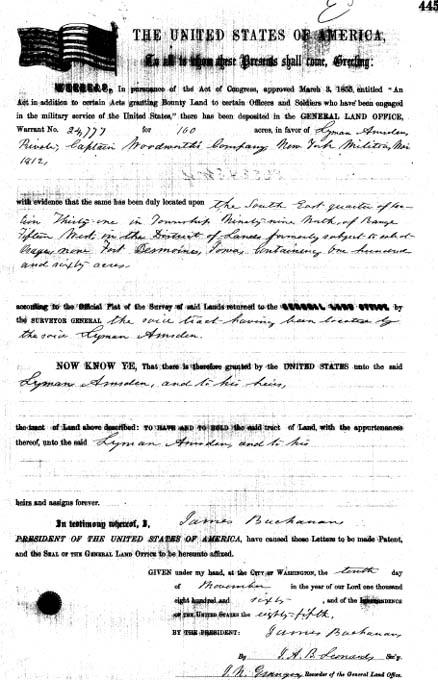 445
THE UNITED STATES OF AMERICA,
To all to whom these Presents shall come, Greeting:
WHEREAS, In pursuance of the Act of Congress, approved March 3, 1855, entitled "An
Act in addition to certain Acts granting Bounty Land to certain Officers and Soldiers who have been engaged
in the military service of the United States," there has been deposited in the GENERAL LAND OFFICE,
Warrant No. 24,777 for 160 acres, in favor of Lyman Amsden,
Private, Captain Woodworth's Company, New York Militia, War
1812,
with evidence that the same has been duly located upon the South East quarter of Sec-
tion Thirty-one in Township Ninety-nine North, of Range
Fifteen West, in the District of Lands formerly subject to sale at
Osage, now Fort Desmoines, Iowa, Containing One hundred
and sixty acres
according to the Official Plat of the Survey of said Lands returned to the GENERAL LAND OFFICE by
the SURVEYOR GENERAL the said tract having been located by
the said Lyman Amsden.
NOW KNOW YE, That there is therefore granted by the UNITED STATES unto the said
Lyman Amsden, and to his heirs,
the tract of Land above described: TO HAVE AND TO HOLD the said tract of Land, with the appurtenances
thereof, unto the said Lyman Amsden, and to his
heirs and assigns forever.
In testimony whereof, I, James Buchanan
PRESIDENT OF THE UNITED STATES OF AMERICA, have caused these Letters to be made Patent,
and the SEAL OF THE GENERAL LAND OFFICE to be hereunto affixed.
GIVEN under my hand, at the CITY OF WASHINGTON, the tenth day
of November in the year of our Lord one thousand
eight hundred and sixty, and of the INDEPENDENCE
OF THE UNITED STATES the eighty-fifth.
BY THE PRESIDENT: James Buchanan
By J. A. B. Leonard Sec'y.
J. N. Granger, Recorder of the General Land Office.